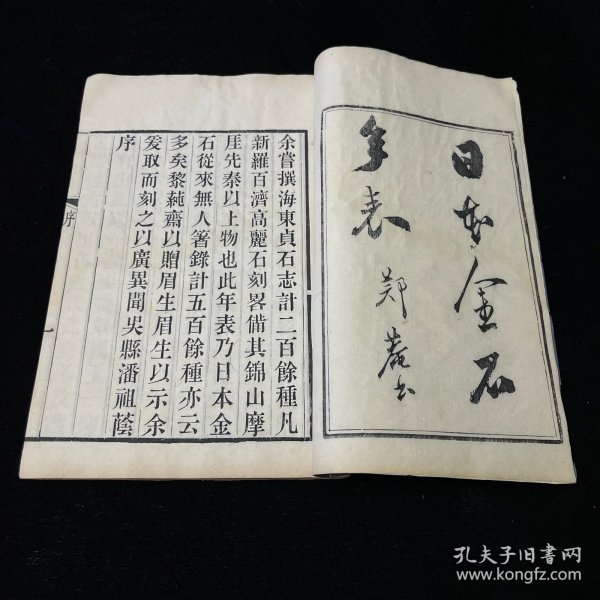 日本金石
年表
鄭盦書
余嘗撰海東貞石志計二百餘種凡
新羅百濟高麗石刻畧備其錦山摩
厓先秦以上物也此年表乃日本金
石從來無人箸錄計五百餘種亦云
多矣黎蒓齋以贈眉生眉生以示余
爰取而刻之以廣異聞吳縣潘祖蔭
序
序
一
孔夫子旧书网
www.kongfz.com